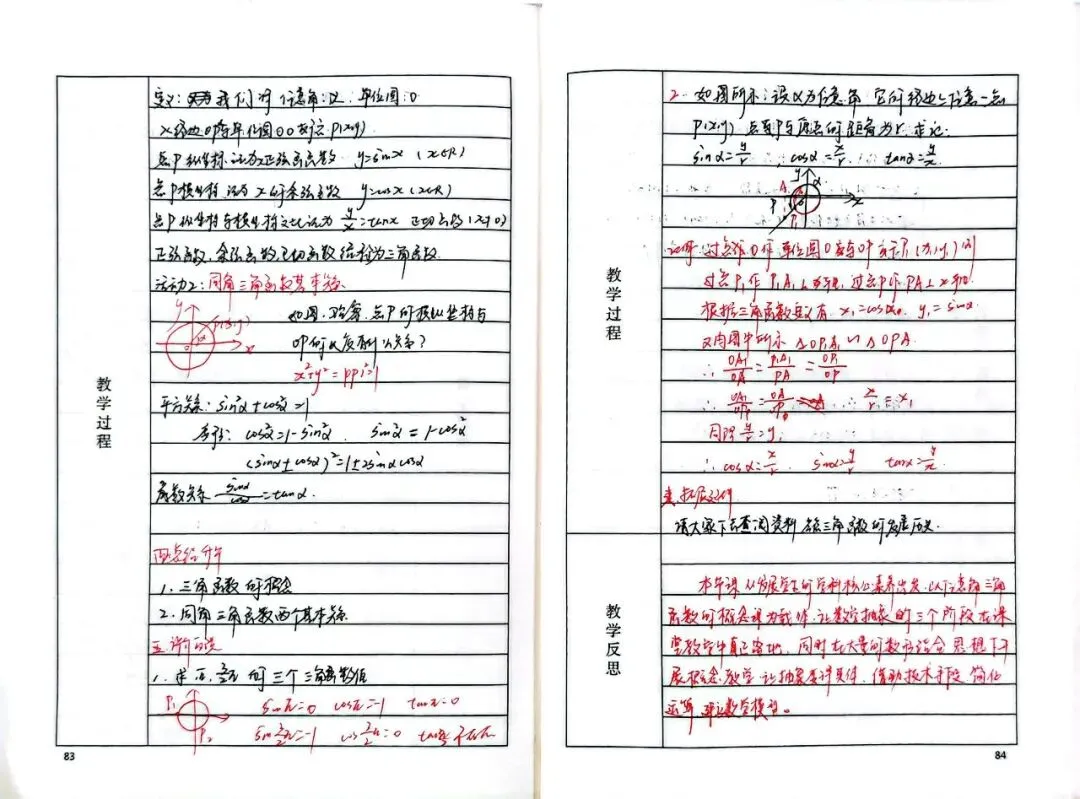 教学过程
定义: 我们将任意角:α 单位圆:O
点P纵坐标 正弦函数 y=sinx (x∈R)
点P横坐标 x的余弦函数 y=cosx (x∈R)
点P纵坐标与横坐标之比 为 y/x=tanx 正切函数 (x≠0)
正弦函数, 余弦函数, 正切函数 统称为三角函数.
活动2: 同角三角函数基本关系
y
P(x,y)
x
如图, 点P的横纵坐标与
OP的长度有什么关系?
x²+y²=|OP|²=1
平方关系: sin²α+cos²α=1
cos²α=1-sin²α. sin²α=1-cos²α
(sinα±cosα)²=1±2sinαcosα
商数关系 sinα/cosα=tanα.
1. 三角函数的概念
2. 同角三角函数两个基本关系
1. 求 π, 的三个三角函数值
P₁
P₂
sinπ=0 cosπ=-1 tanπ=0
sin 3/2π=-1 cos 3/2π=0 不存在
83
2. 如图所示:设α为任意角, 它的终边上任意一点
P(x,y) 点P与原点的距离为r. 求证:
sinα=y/r, cosα=x/r, tanα=y/x.
y
α
A
x
P
P₁
教学过程
过点P₁作P₁A₁⊥x轴, 过点P作PA⊥x轴.
根据三角函数定义有. x₁=cosα, y₁=sinα
又由图中所示 △OP₁A₁∽△OPA.
∴ OA₁/OA=P₁A₁/PA=OP₁/OP
∴ x/r=x₁
同理 =y₁
∴ cosα=x/r sinα=y/r tanα=y/x.
请大家下去查阅资料 三角函数的发展历史.
教学反思
本节课从发展学生的学科核心素养出发, 以任意角三角
函数的概念课为载体, 让数学抽象的三个阶段在课
堂教学中真正落地, 同时在大量的数形结合思想下开
展概念教学, 让抽象变得具体, 借助技术手段 简化
运算, 建立数学模型。
84